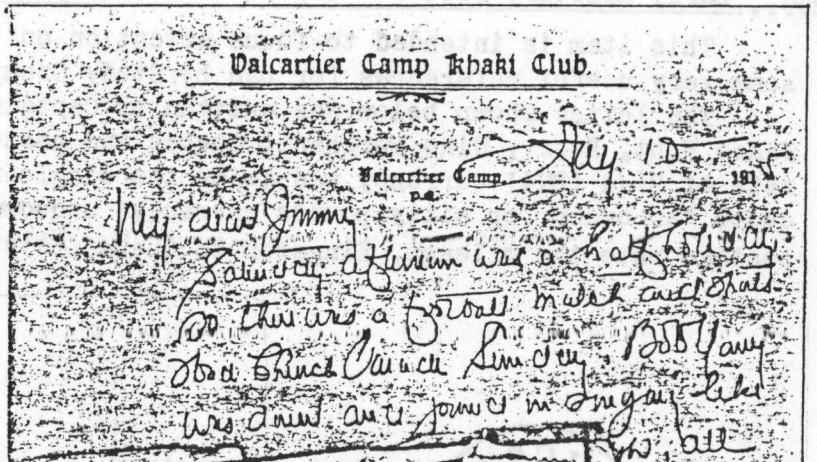 This item is intended to
Valcartier Camp Khaki Club.
Valcartier Camp, Aug 10 1915
P.Q.
My dear Jimmy
Saturday afternoon was a half holiday
So there was a football match and sports
Had Church Parade Sunday. Bob
was down and joined in singing like
all